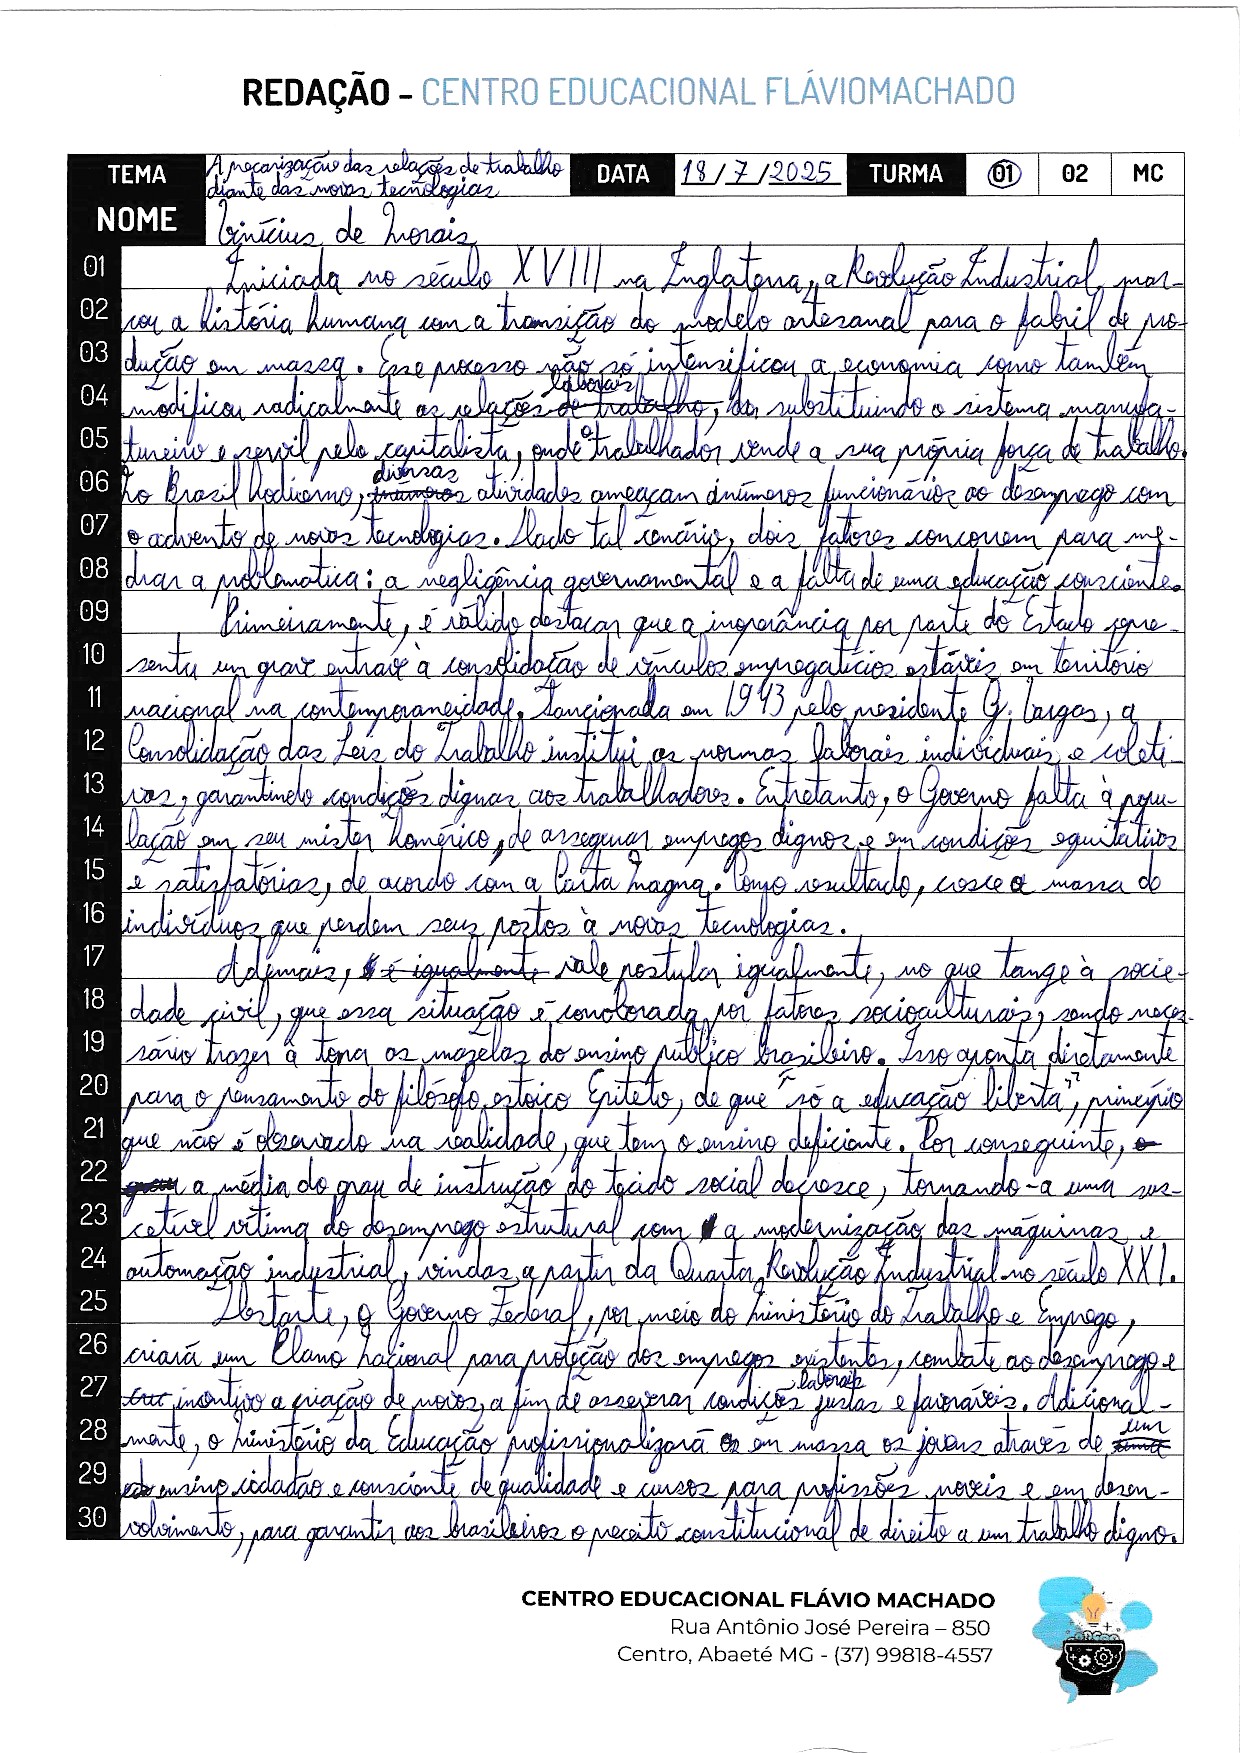 REDAÇÃO - CENTRO EDUCACIONAL FLÁVIOMACHADO
TEMA A precarização das relações de trabalho diante das novas tecnologias DATA 18/7/2025 TURMA 01 02 MC
NOME Vinícius de Morais
01 Iniciada no século XVIII na Inglaterra, a Revolução Industrial mar-
02 cou a história humana com a transição do modelo artesanal para o fabril de pro-
03 dução em massa. Esse processo não só intensificou a economia como também
04 modificou radicalmente as relações laborais, substituindo o sistema manufa-
05 tureiro e servil pelo capitalista, onde o trabalhador vende a sua própria força de trabalho.
06 No Brasil hodierno, diversas atividades ameaçam inúmeros funcionários ao desemprego com
07 o advento de novas tecnologias. Dado tal cenário, dois fatores concorrem para me-
08 drar a problemática: a negligência governamental e a falta de uma educação consciente.
09 Primeiramente, é válido destacar que a inoperância por parte do Estado repre-
10 senta um grave entrave à consolidação de vínculos empregatícios estáveis em território
11 nacional na contemporaneidade. Sancionada em 1943 pelo presidente G. Vargas, a
12 Consolidação das Leis do Trabalho institui as normas laborais individuais e coleti-
13 vas, garantindo condições dignas aos trabalhadores. Entretanto, o Governo falta à popu-
14 lação em seu mister homérico, de assegurar empregos dignos e em condições equitativas
15 e satisfatórias, de acordo com a Carta Magna. Como resultado, cresce a massa de
16 indivíduos que perdem seus postos à novas tecnologias.
17 Ademais, vale postular igualmente, no que tange à socie-
18 dade civil, que essa situação é corroborada por fatores socioculturais, sendo neces-
19 sário trazer à tona as mazelas do ensino público brasileiro. Isso aponta diretamente
20 para o pensamento do filósofo estoico Epiteto, de que "só a educação liberta", princípio
21 que não é observado na realidade, que tem o ensino deficiente. Por conseguinte,
22 a média do grau de instrução do tecido social decresce, tornando-a uma sus-
23 cetível vítima do desemprego estrutural com a modernização das máquinas e
24 automação industrial, vindas a partir da Quarta Revolução Industrial no século XXI.
25 Destarte, o Governo Federal, por meio do Ministério do Trabalho e Emprego,
26 criará um Plano Nacional para proteção dos empregos existentes, combate ao desemprego e
27 incentivo a criação de novos, a fim de asseverar condições laborais justas e favoráveis. Adicional-
28 mente, o Ministério da Educação profissionalizará em massa os jovens através de um
29 ensino cidadão e consciente de qualidade e cursos para profissões novéis e em desen-
30 volvimento, para garantir aos brasileiros o preceito constitucional de direito a um trabalho digno.
CENTRO EDUCACIONAL FLÁVIO MACHADO
Rua Antônio José Pereira – 850
Centro, Abaeté MG - (37) 99818-4557